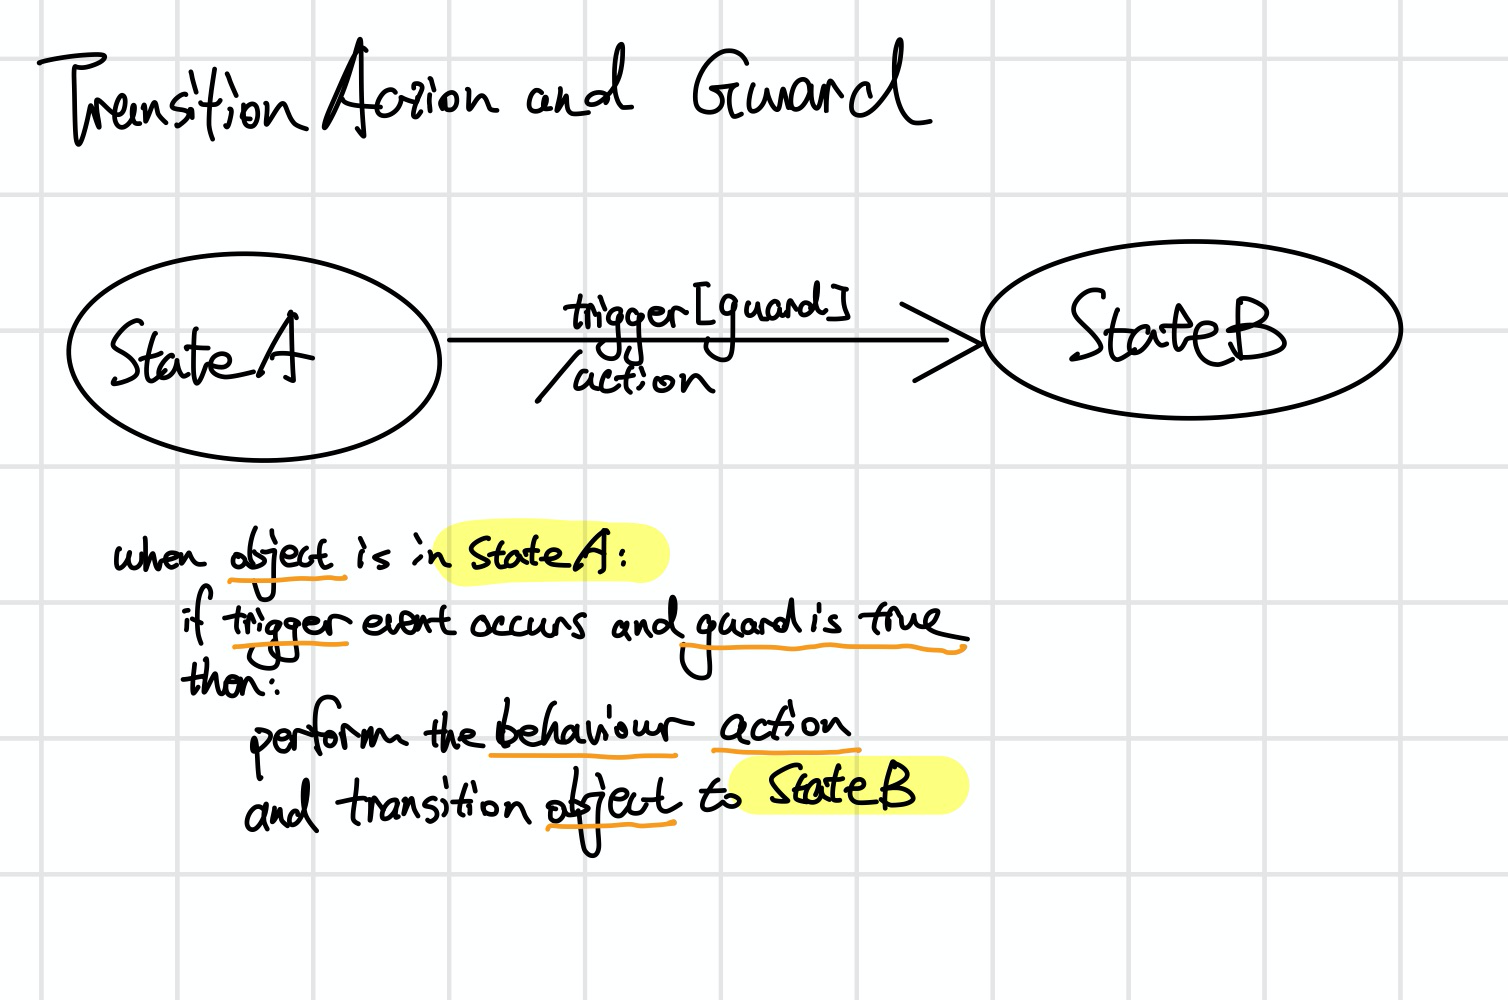 Transition Action and Guard
trigger[guard]
State A
State B
/action
when object is in State A:
if trigger event occurs and guard is true
then:
perform the behaviour action
and transition object to State B